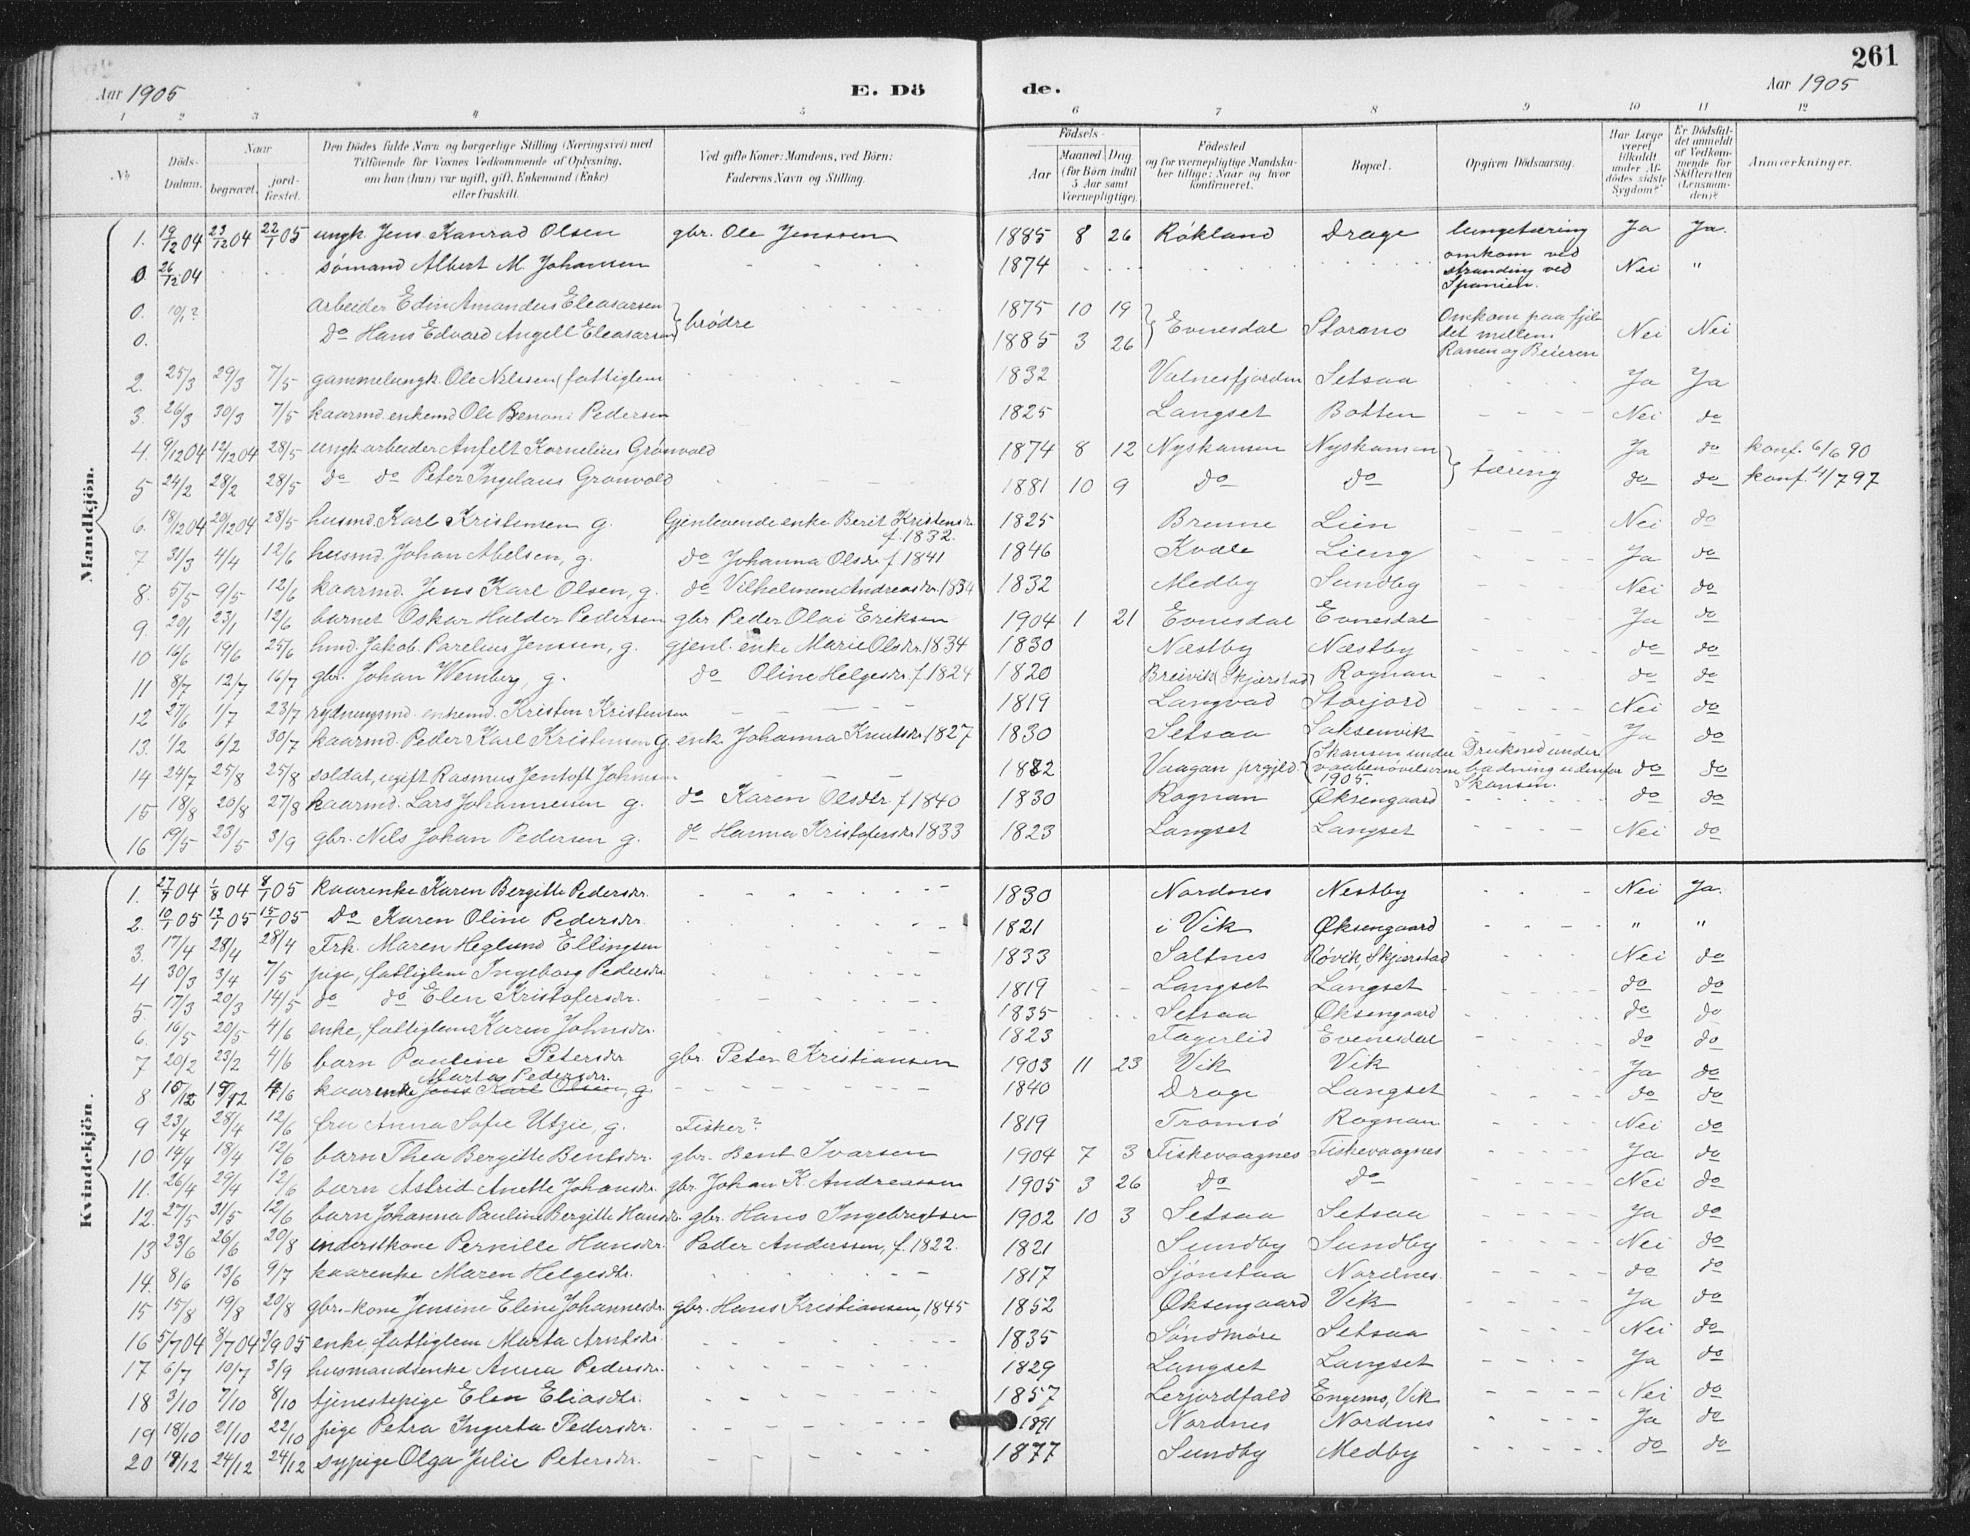 261
Aar 1905 E. Dö de. Aar 1905
1 2 3 4 5 6 7 8 9 10 11 12
No. Döds-Datum. Naar begravet. jord-fæstet. Den Dödes fulde Navn og borgerlige Stilling (Næringsvei) med Tilföiende for Voxnes Vedkommende af Oplysning, om han (hun) var ugift, gift, Enkemand (Enke) eller fraskilt. Ved gifte Koner: Mandens, ved Börn: Faderens Navn og Stilling. Födsels- Aar Maaned Dag (for Börn indtil 5 Aar samt Værnepligtige). Födested og for værnepligtige Mandskaber tillige: Naar og hvor konfirmeret. Bopæl. Opgiven Dödsaarsag. Har Læge været tilkaldt under Afdödes sidste Sygdom? Er Dödsfaldet anmeldt af Vedkommende for Skifteretten (Lensmanden)? Anmærkninger.
Mandkjön.
1. 19/12 04 23/12 04 22/1 05 ungk. Jens Konrad Olsen gbr. Ole Jenssen 1885 8 26 Røkland Drage lungetæring Ja Ja.
0. 26/12 04 sømand Albert M. Johansen 1874 omkom ved stranding ved Spanien. Nei "
0. 10/1? arbeider Edin Amandus Eleasarsen } brødre 1875 10 19 } Evnesdal Storano Omkom paa fjeldet mellem Ranen og Beieren Nei Nei
0. do Hans Edvard Angell Eleasarsen 1885 3 26
2. 25/3 29/3 7/5 gammelungk. Ole Nilssen (fattiglem 1832 Valnesfjorden Setsaa Ja Ja
3. 26/3 30/3 7/5 kaarmd. enkemd Ole Benoni Pedersen 1825 Langset Botten Nei do
4. 9/12 04 12/12 04 28/5 ungk arbeider Anfelt Kornelius Grønvold 1874 8 12 Nyskansen Nyskansen } tæring Ja do konf. 6/6 90
5 24/2 28/2 28/5 do do Peter Ingelaus Grønvold 1881 10 9 do do do do konf. 4/7 97
6. 18/12 04 20/12 04 28/5 husmd. Karl Kristensen g. Gjenlevende enke Berit Kristensdr. f. 1832. 1825 Brenne Lien Nei do
7 31/3 4/4 12/6 husmd. Johan Abelsen, g. do Johanna Olsdr f 1841 1846 Kvale Lieng Ja do
8. 5/5 9/5 12/6 kaarmd. Jens Karl Olsen, g. do Vilhelmine Andreasdr. 1834 1832 Medby Sundby Nei do
9. 20/1 23/1 12/6 barnet Oskar Halder Pedersen gbr Peder Olai Eriksen 1904 1 21 Evnesdal Evnesdal Ja do
10 16/6 19/6 25/6 hmd. Jakob Parelius Jenssen, g. gjenl. enke Marie Olsdr. 1834 1830 Næstby Næstby do do
11 8/7 12/7 16/7 gbr. Johan Wemberg, g. do Oline Helgesdr. f. 1824 1820 Breivik (Skjerstad) Rognan do do
12 27/6 1/7 23/7 rydningsmd. enkemd. Kristen Kristensen 1819 Langvad Storjord Nei do
13. 1/2 6/2 30/7 kaarmd. Peder Karl Kristensen g. enk. Johanna Knutsdr. 1827 1830 Setsaa Saksenvik Ja do
14 24/7 25/8 25/8 soldat, ugift Rasmus Jentoft Johnsen 1882 Vaagan prgjld. (Skansen under vaabenøvelserne 1905. Drukned under badning udenfor Skansen. do do
15 18/8 20/8 27/8 kaarmd. Lars Johannesen g. do Karen Olsdtr. f 1840 1830 Rognan Øksengaard do do
16 19/5 23/5 3/9 gbr. Nils Johan Pedersen g. do Hanna Kristofersdr. 1833 1823 Langset Langset Nei do
Kvindekjön.
1. 27/7 04 1/8 04 8/1 05 kaarenke Karen Bergitte Pedersdr. 1830 Nordnes Nestby Nei Ja.
2. 10/1 05 13/1 05 15/1 05 do Karen Oline Pedersdr. 1821 i Vik Øksengaard " "
3. 17/4 28/4 28/4 Frk. Maren Heglund Ellingsen 1833 Saltnes Røvik, Skjerstad Nei do
4 30/3 3/4 7/5 pige, fattiglem Ingeborg Pedersdr. 1819 Langset Langset do do
5. 17/3 20/3 14/5 do do Elen Kristofersdr. 1835 Setsaa Øksengaard do do
6. 16/5 20/5 4/6 enke, fattiglem Karen Johnsdr. 1823 Fagerlid Evenesdal do do
7 20/2 23/2 4/6 barn Pauline Petersdr gbr. Peter Kristiansen 1903 11 23 Vik Vik Ja do
8 10/12 15/12 4/6 kaarenke Marta Pedersdr. Jens Karl Olsen, g 1840 Drage Langset do do
9 23/4 28/4 12/6 fru Anna Sofie Utzie, g. Fisker? 1819 Tromsø Rognan Nei do
10 14/4 18/4 12/6 barn Thea Bergitte Bentsdr. gbr. Bent Ivarsen 1904 7 3 Fiskevaagnes Fiskevaagnes Ja do
11. 26/4 29/4 12/6 barn Astrid Anette Johansdr. gbr. Johan K. Andreassen 1905 3 26 do do Nei do
12. 27/5 31/5 12/6 barn Johanna Pauline Bergitte Hansdr. gbr. Hans Ingebrigtsen 1902 10 3 Setsaa Setsaa Ja do
13 23/6 26/6 20/8 inderstkone Pernille Hansdr. Peder Anderssen, f. 1822. 1821 Sundby Sundby Nei do
14. 8/6 13/6 9/7 kaarenke Maren Helgesdtr. 1817 Sjønstaa Nordnes. do do
15 15/8 19/8 20/8 gbr.-kone Jensine Eline Johannesdr. gbr. Hans Kristiansen, 1845 1852 Øksengaard Vik Ja do
16 5/7 04 8/7 04 3/9 05 enke, fattiglem Marta Arntsdr. 1835 Søndmøre Setsaa Nei do
17 6/7 10/7 3/9 husmandsenke Anna Pedersdr. 1829 Langset Langset Ja do
18 3/10 7/10 8/10 tjenestepige Elen Eliasdtr. 1857 Lerjordfald Engems, Vik Nei do
19 18/10 21/10 22/10 pige Petra Ingerta Pedersdr. 1891 Nordnes Nordnes Ja do
20 19/12 24/12 24/12 sypige Olga Julie Petersdr. 1877 Sundby Medby do do